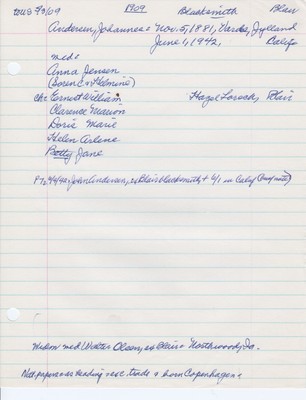 1909 Blacksmith Blair
Andersen, Johannes = Nov. 5, 1881, Varde, Jylland
June 1, 1942, Calif
med =
Anna Jensen
(Soren C + Helmine)
ch: Ernest William Hazel Blair
Clarence Marion
Doris Marie
Helen Arlene
Betty Jane
John Andersen, ex Blair blacksmith, + 6/1 in Calif
Widow med Walter Olsen, ex Blair = Northwood, Ia.
Nat. papers as heading exc. trade + born Copenhagen =